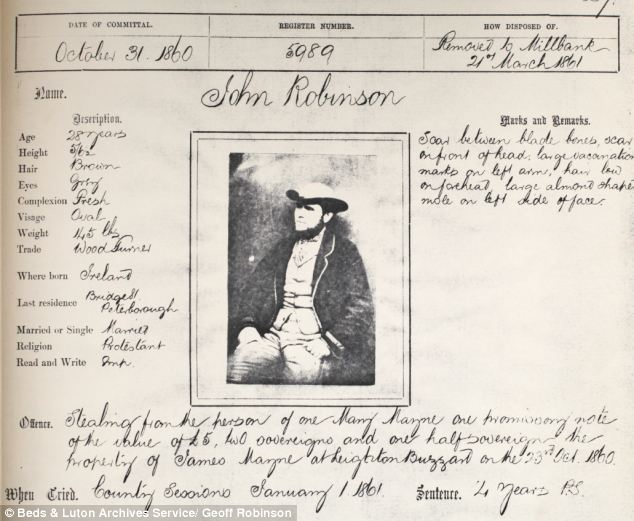 DATE OF COMMITTAL. REGISTER NUMBER. HOW DISPOSED OF.
October 31. 1860 5989 Removed to Millbank
21st March 1861
Name. John Robinson
Description. Marks and Remarks.
Age 28 years
Height 5/6½
Hair Brown
Eyes Grey
Complexion Fresh
Visage Oval
Weight 145 lbs
Trade Wood Turner
Where born Ireland
Last residence Bridge St
Peterborough
Married or Single Married
Religion Protestant
Read and Write Imp.
Scar between blade bones, scar
on front of head, large vaccination
marks on left arm, hair low
on forehead large almond shape
mole on left side of face.
Offence. Stealing from the person of one Mary Mayne one promissory note
of the value of £5, two sovereigns and one half sovereign the
property of James Mayne at Leighton Buzzard on the 23rd Oct. 1860.
When Tried. County Sessions January 1 1861. Sentence. 4 Years P.S.
© Beds & Luton Archives Service/ Geoff Robinson